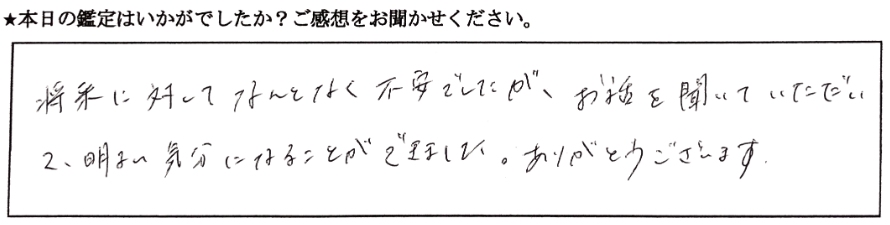 ★本日の鑑定はいかがでしたか？ご感想をお聞かせください。
将来に対してなんとなく不安でしたが、お話を聞いていただい
て、明るい気分になることができました。ありがとうございます。